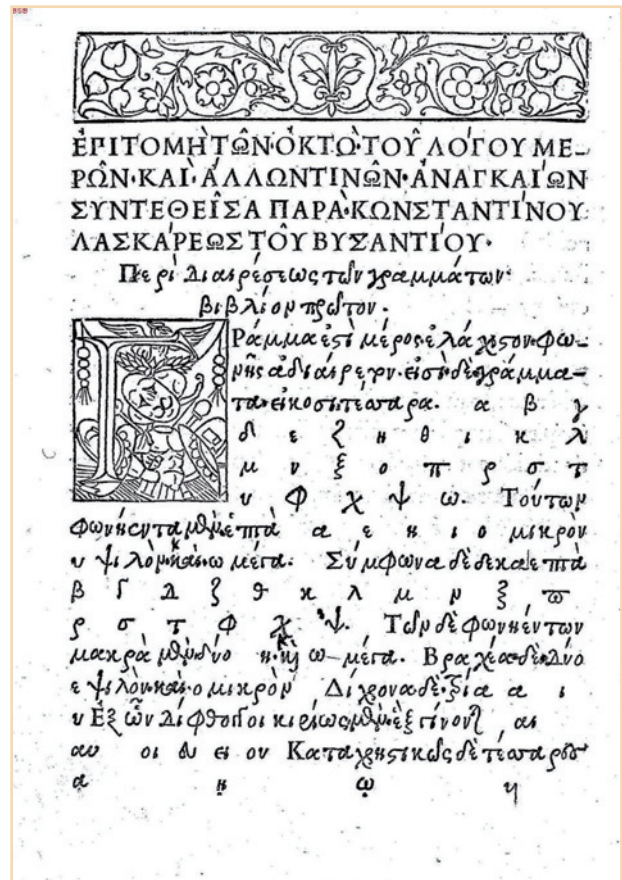 ἘΠΙΤΟΜῊ ΤΩ͂Ν· ὈΚΤῺ· ΤΟΥ͂ ΛΌΓΟΥ ΜΕ-
ΡΩ͂Ν· ΚΑῚ· ἌΛΛΩΝ ΤΙΝΩ͂Ν· ἈΝΑΓΚΑΊΩΝ
ΣΥΝΤΕΘΕΙ͂ΣΑ ΠΑΡᾺ· ΚΩΝΣΤΑΝΤΊΝΟΥ
ΛΑΣΚΆΡΕΩΣ ΤΟΥ͂ ΒΥΖΑΝΤΊΟΥ·
Περὶ Διαιρέσεως τῶν γραμμάτων·
βιβλίον πρῶτον.
Γράμμα ἐστὶ μέρος ἐλάχιστον· Φω-
νῆς ἀδιαίρετον· εἰσὶ· δὲ· γράμμα-
τα· εἰκοσιτέσσαρα. α β γ
δ ε ζ η θ ι κ λ
μ ν ξ ο π ρ σ τ
υ φ χ ψ ω. Τούτων
Φωνήεντα μὲν· ἑπτὰ α ε η ι ο μικρὸν
υ ψιλὸν· καὶ· ω μέγα. Σύμφωνα δὲ δεκαεπτὰ
β Γ Δ ζ θ κ λ μ ν ξ π
ρ σ τ φ χ ψ. Τῶν δὲ φωνηέντων
μακρὰ μὲν· δύο η· καὶ ω μέγα. Βραχέα· δὲ· Δύο
ε ψιλὸν· καὶ· ο μικρὸν Δίχρονα· δὲ· τρία α ι
υ Ἐξ ὧν Δίφθογγοι κυρίως· μὲν· ἓξ γίνονται αι
αυ οι ευ ει ου Καταχρηστικῶς δὲ τέσσαρες
ᾳ ῃ ῳ